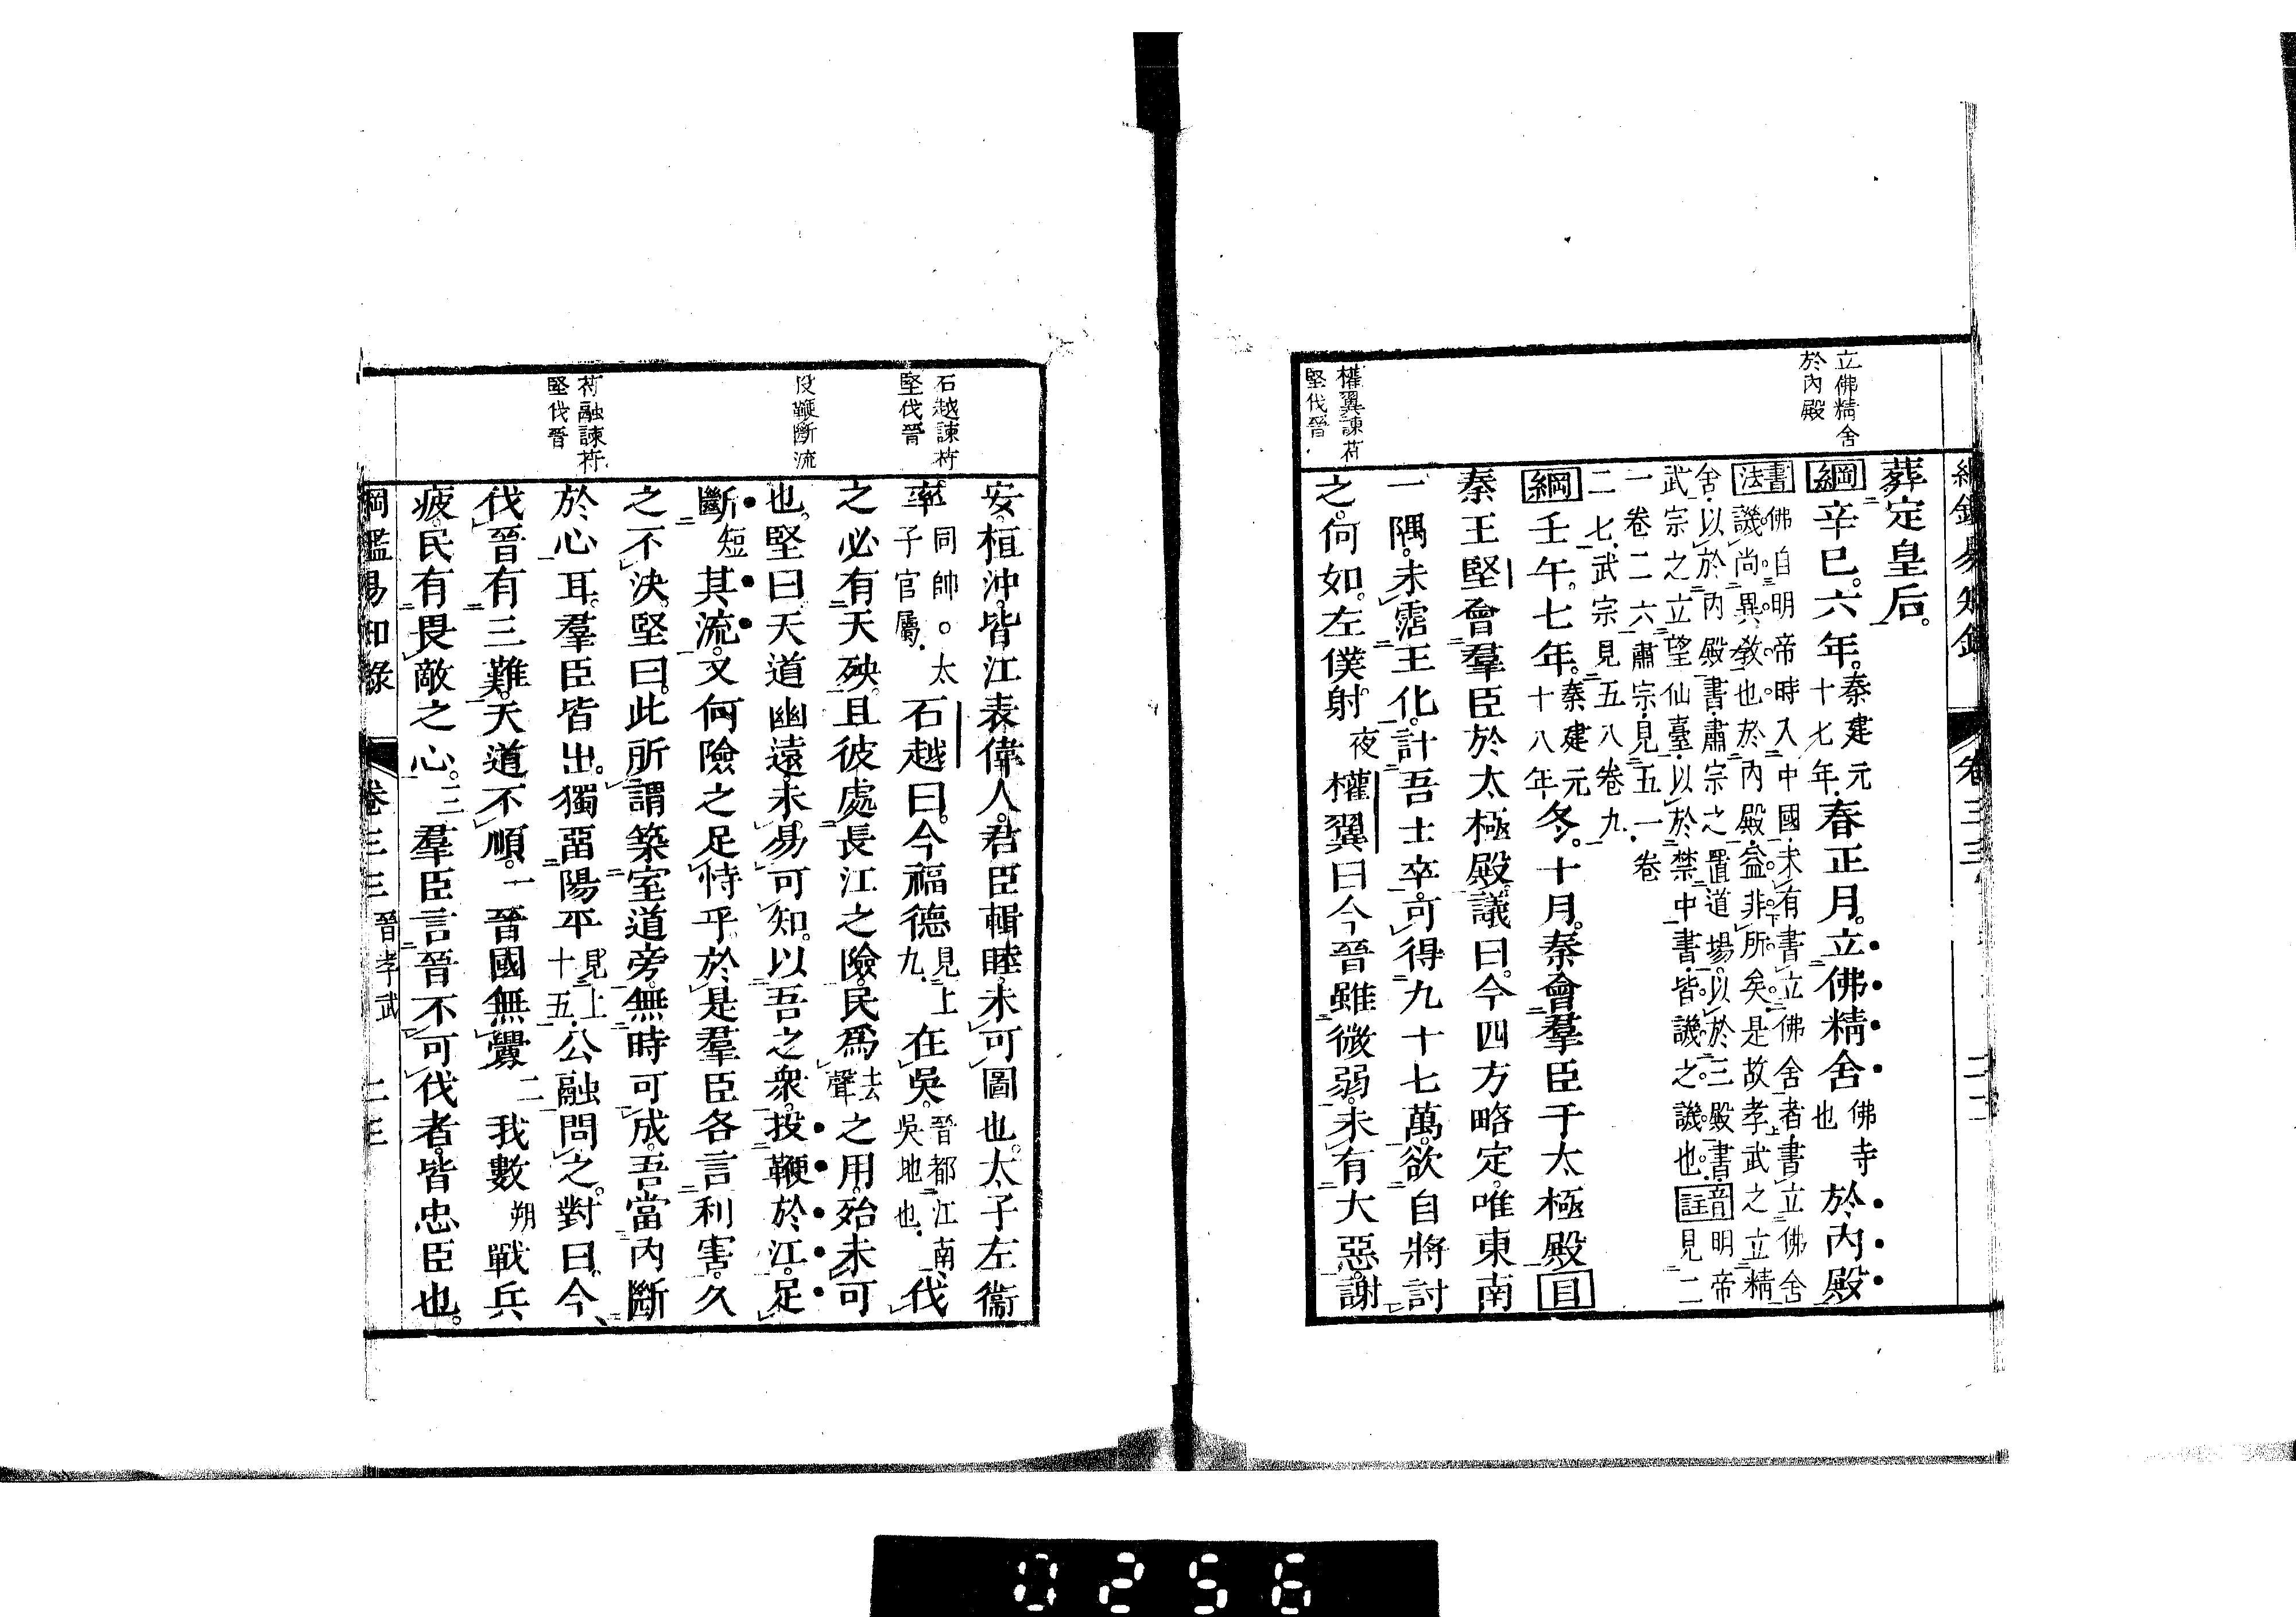 立佛精舍
於內殿
權翼諫苻
堅伐晉
葬定皇后。
綱辛巳。六年。秦建元十七年。春正月。立佛精舍佛寺也於內殿
書法佛自明帝時入中國。未有書立佛舍者。書立佛舍
譏。尚異教也。於內殿。益非所矣。是故孝武之立精
舍。以於內殿書。肅宗之置道場。以於三殿書。
武宗之立望仙臺。以於禁中書。皆譏之。譏也。註音明帝見二
一卷二六。肅宗見五一卷
二七。武宗見五八卷九
綱壬午。七年。秦建元十八年冬。十月。秦會羣臣于太極殿目
秦王堅會羣臣於太極殿。議曰。今四方略定。唯東南
一隅。未霑王化。計吾士卒。可得九十七萬。欲自將討
之。何如。左僕射夜權翼曰今晉雖微弱。未有大惡。謝
石越諫苻
堅伐晉
投鞭斷流
苻融諫苻
堅伐晉
安。桓沖。皆江表偉人。君臣輯睦。未可圖也。太子左衞
率同帥。○太子官屬。石越曰。今福德見上九。在吳。晉都江南吳地也。伐
之必有天殃。且彼處長江之險。民爲去聲之用。殆未可
也。堅曰天道幽遠。未易可知。以吾之衆。投鞭於江。足
斷短其流。又何險之足恃乎。於是羣臣各言利害。久
之不決。堅曰。此所謂築室道旁。無時可成。吾當內斷
於心耳。羣臣皆出。獨畱陽平見上十五。公融問之。對曰。今
伐晉有三難。天道不順。一晉國無釁二我數朔戰兵
疲。民有畏敵之心。三羣臣言晉不可伐者。皆忠臣也。
綱鑑易知錄 卷三三 晉孝武 二三